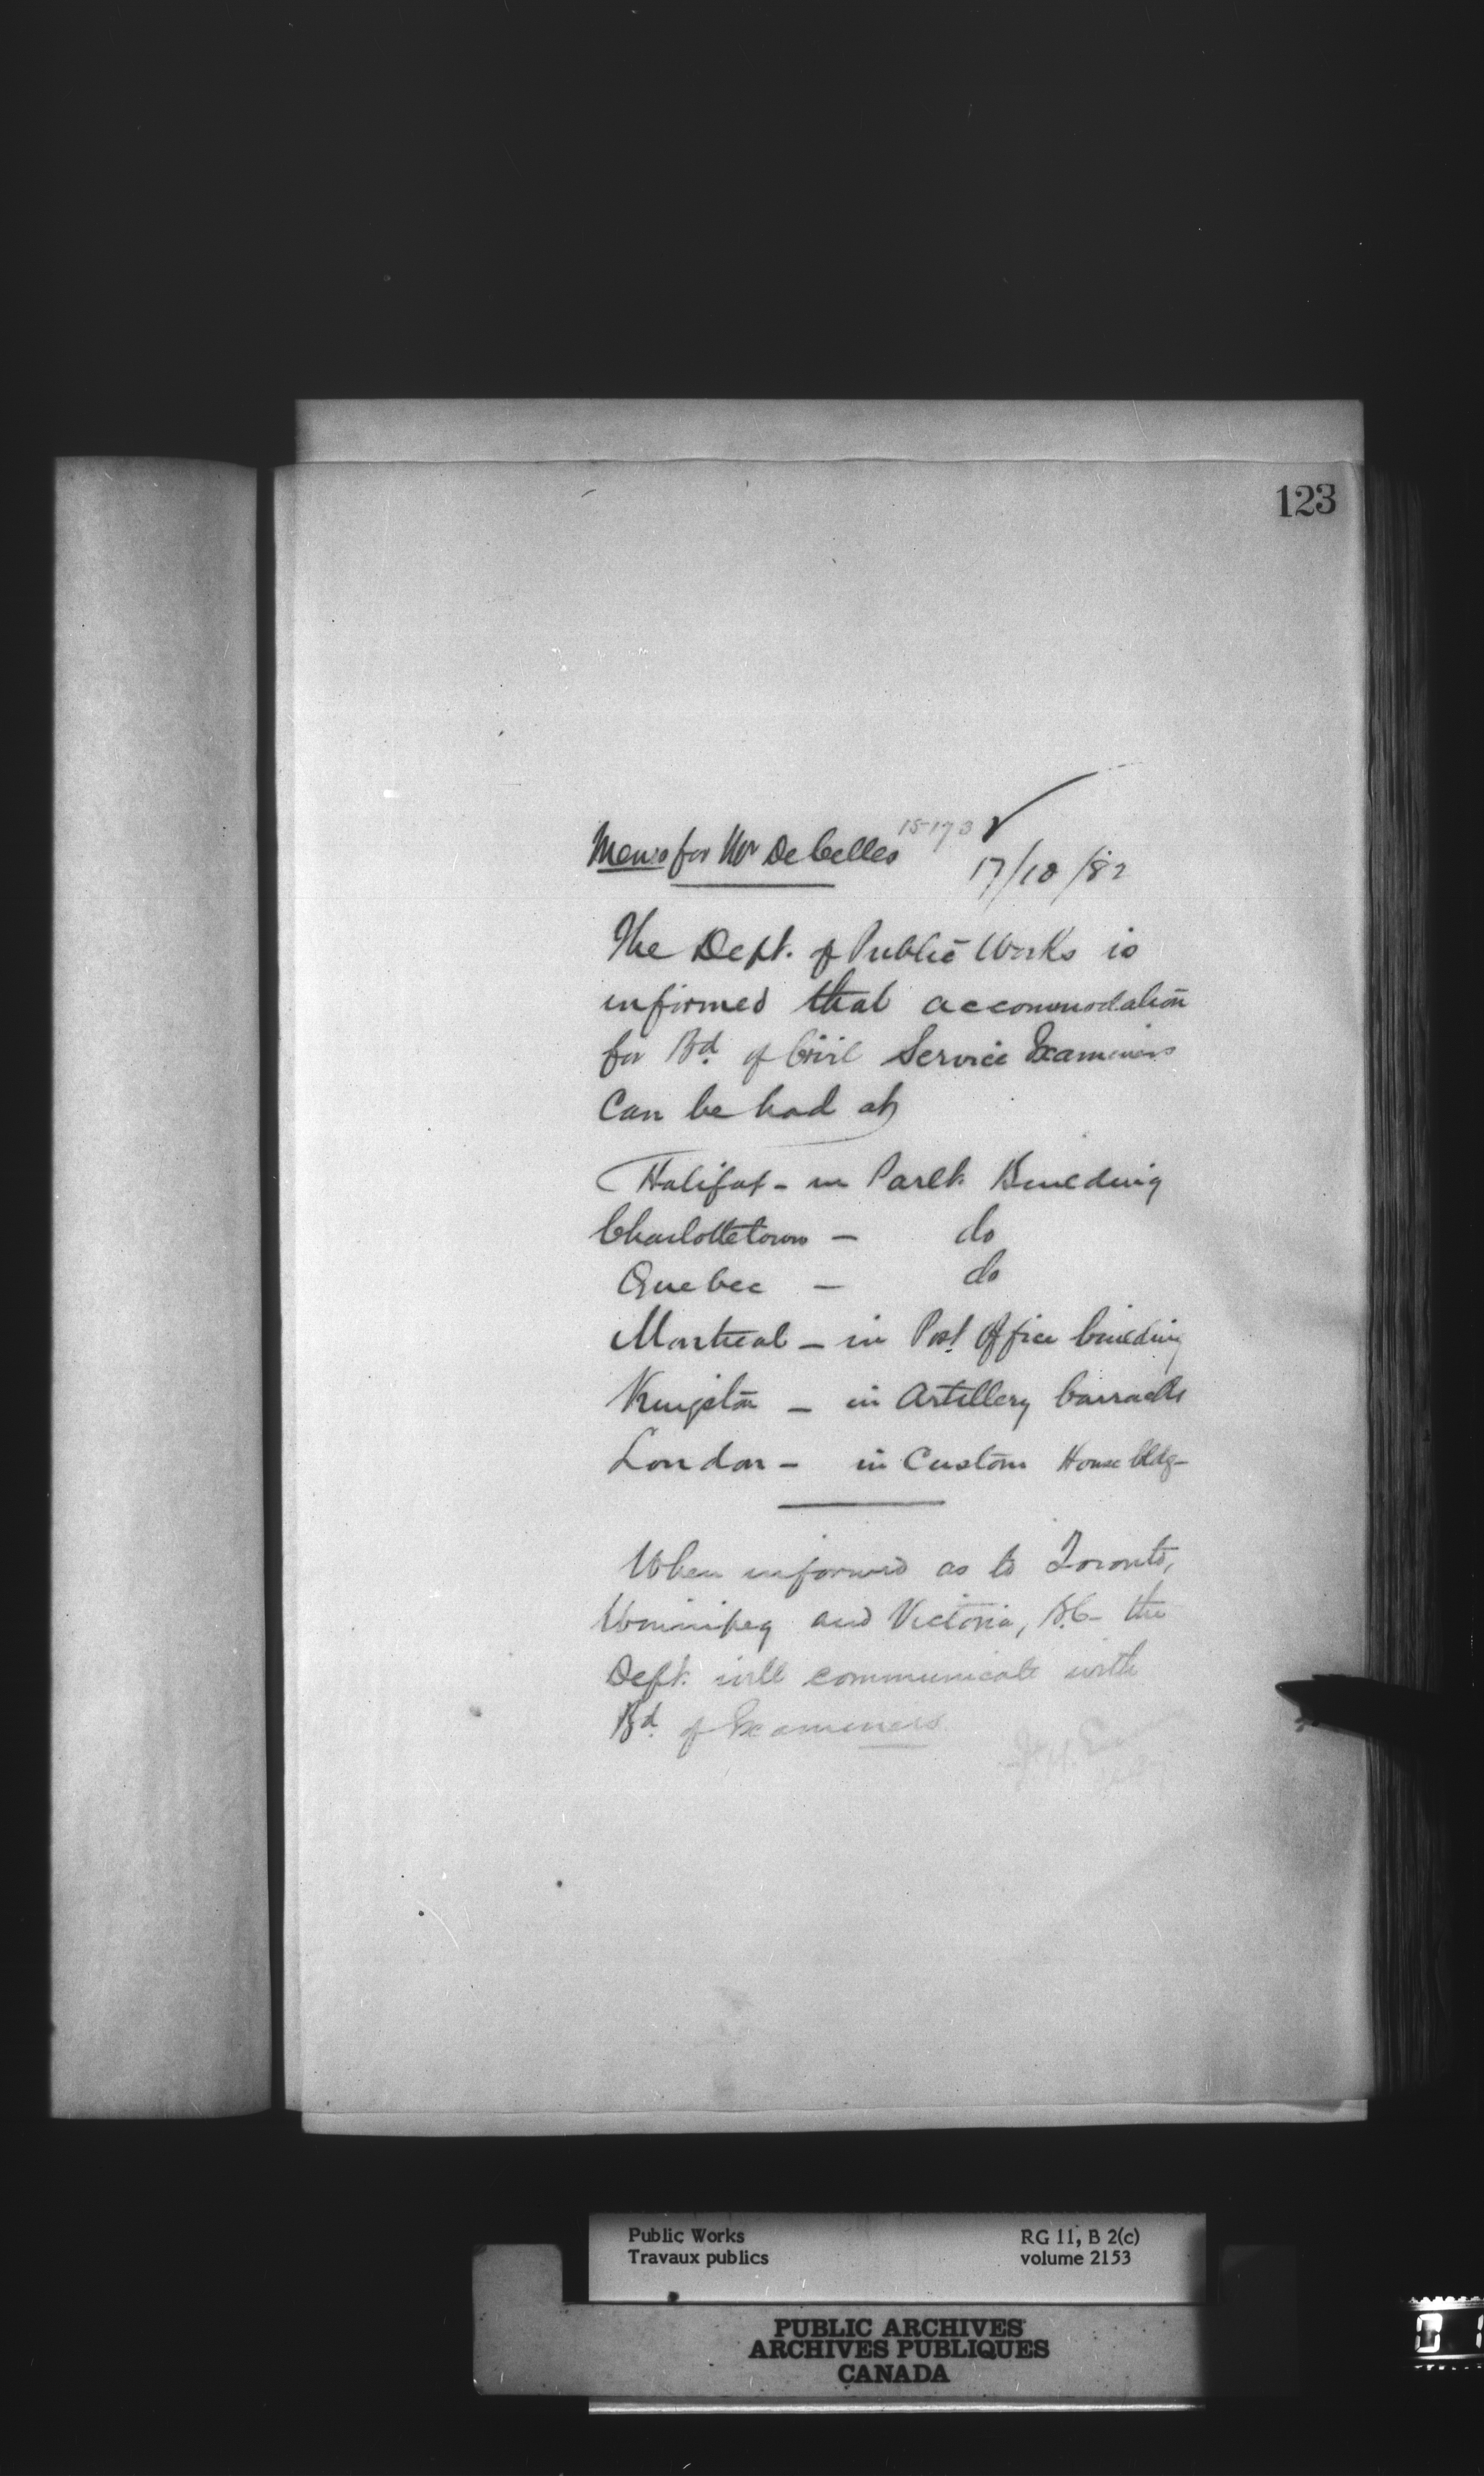 123
15173
Memo for Mr De Celles
17/10/82
The Dept. of Public Works is
informed that accommodation
for Bd. of Civil Service Examiners
can be had at
Halifax - in Parlt. Building
Charlottetown - do
Quebec - do
Montreal - in Post Office building
Kingston - in Artillery barracks
London - in Custom House bldg-
When informed as to Toronto,
Winnipeg and Victoria, B.C. the
Dept. will communicate with
Bd. of Examiners
Public Works
Travaux publics
RG 11, B 2(c)
volume 2153
PUBLIC ARCHIVES
ARCHIVES PUBLIQUES
CANADA